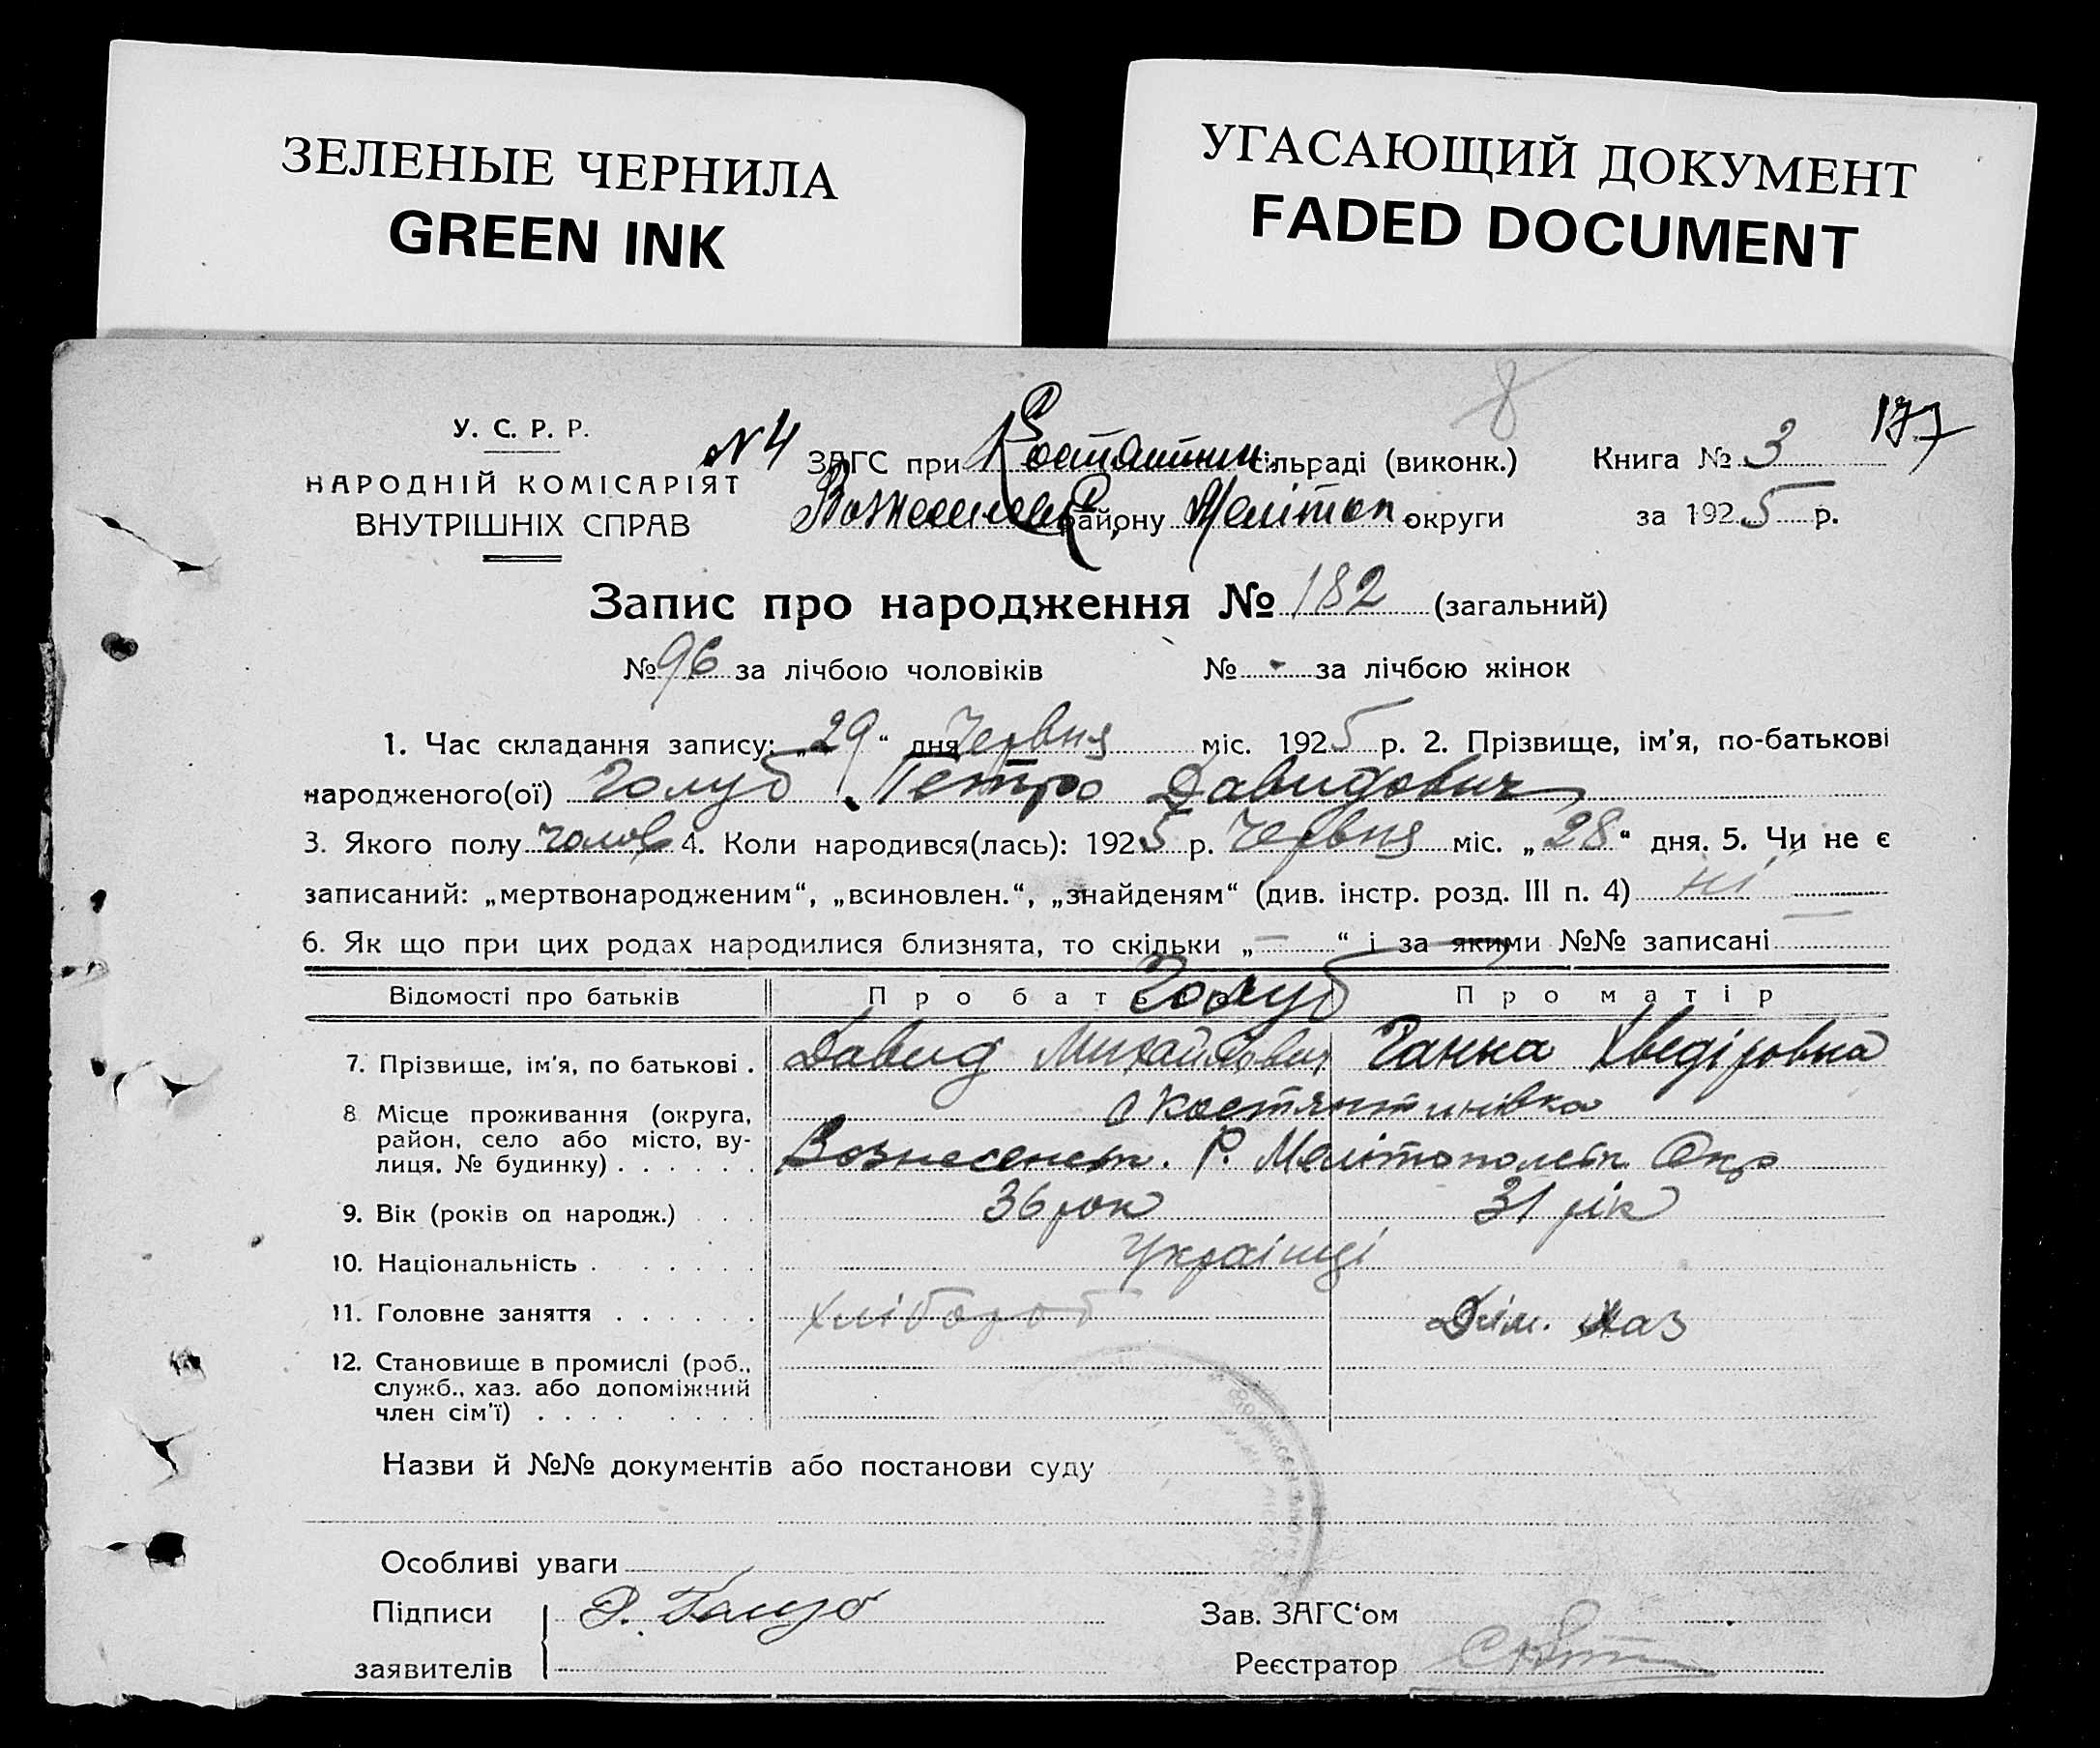 ЗЕЛЕНЫЕ ЧЕРНИЛА
GREEN INK
УГАСАЮЩИЙ ДОКУМЕНТ
FADED DOCUMENT
8
177
У. С. Р. Р.
НАРОДНІЙ КОМІСАРІЯТ
ВНУТРІШНІХ СПРАВ
№ 4 ЗАГС при Костянтин. сільраді (виконк.)
Вознесенск. району Меліт́оп. округи
Книга № 3
за 1925 р.
Запис про народження № 182 (загальний)
№ 96 за лічбою чоловіків № - за лічбою жінок
1. Час складання запису: „29“ дня Червня міс. 1925 р. 2. Прізвище, ім'я, по-батькові
народженого(ої) Голуб Петро Давидович
3. Якого полу чолов 4. Коли народився(лась): 1925 р. Червня міс. „28“ дня. 5. Чи не є
записаний: „мертвонародженим“, „всиновлен.“, „знайденям“ (див. інстр. розд. III п. 4) ні
6. Як що при цих родах народилися близнята, то скільки „—“ і за якими №№ записані —
Відомості про батьків Про батька Про матір
Голуб
7. Прізвище, ім'я, по батькові . Давид Михайлович Ганна Хведіровна
8 Місце проживання (округа, район, село або місто, вулиця, № будинку) . . . . . . с Костянтинівка
Вознесенськ. Р. Мелітопольск Окр
9. Вік (років од народж.) . . . 36 рок 31 рік
10. Національність . . . . . . Українці
11. Головне заняття . . . . . . Хлібороб Дом. Хаз
12. Становище в промислі (роб., служб., хаз. або допоміжний член сім'ї) . . . . . . . .
Назви й №№ документів або постанови суду
Особливі уваги
Підписи заявителів
Зав. ЗАГС‘ом
Реєстратор